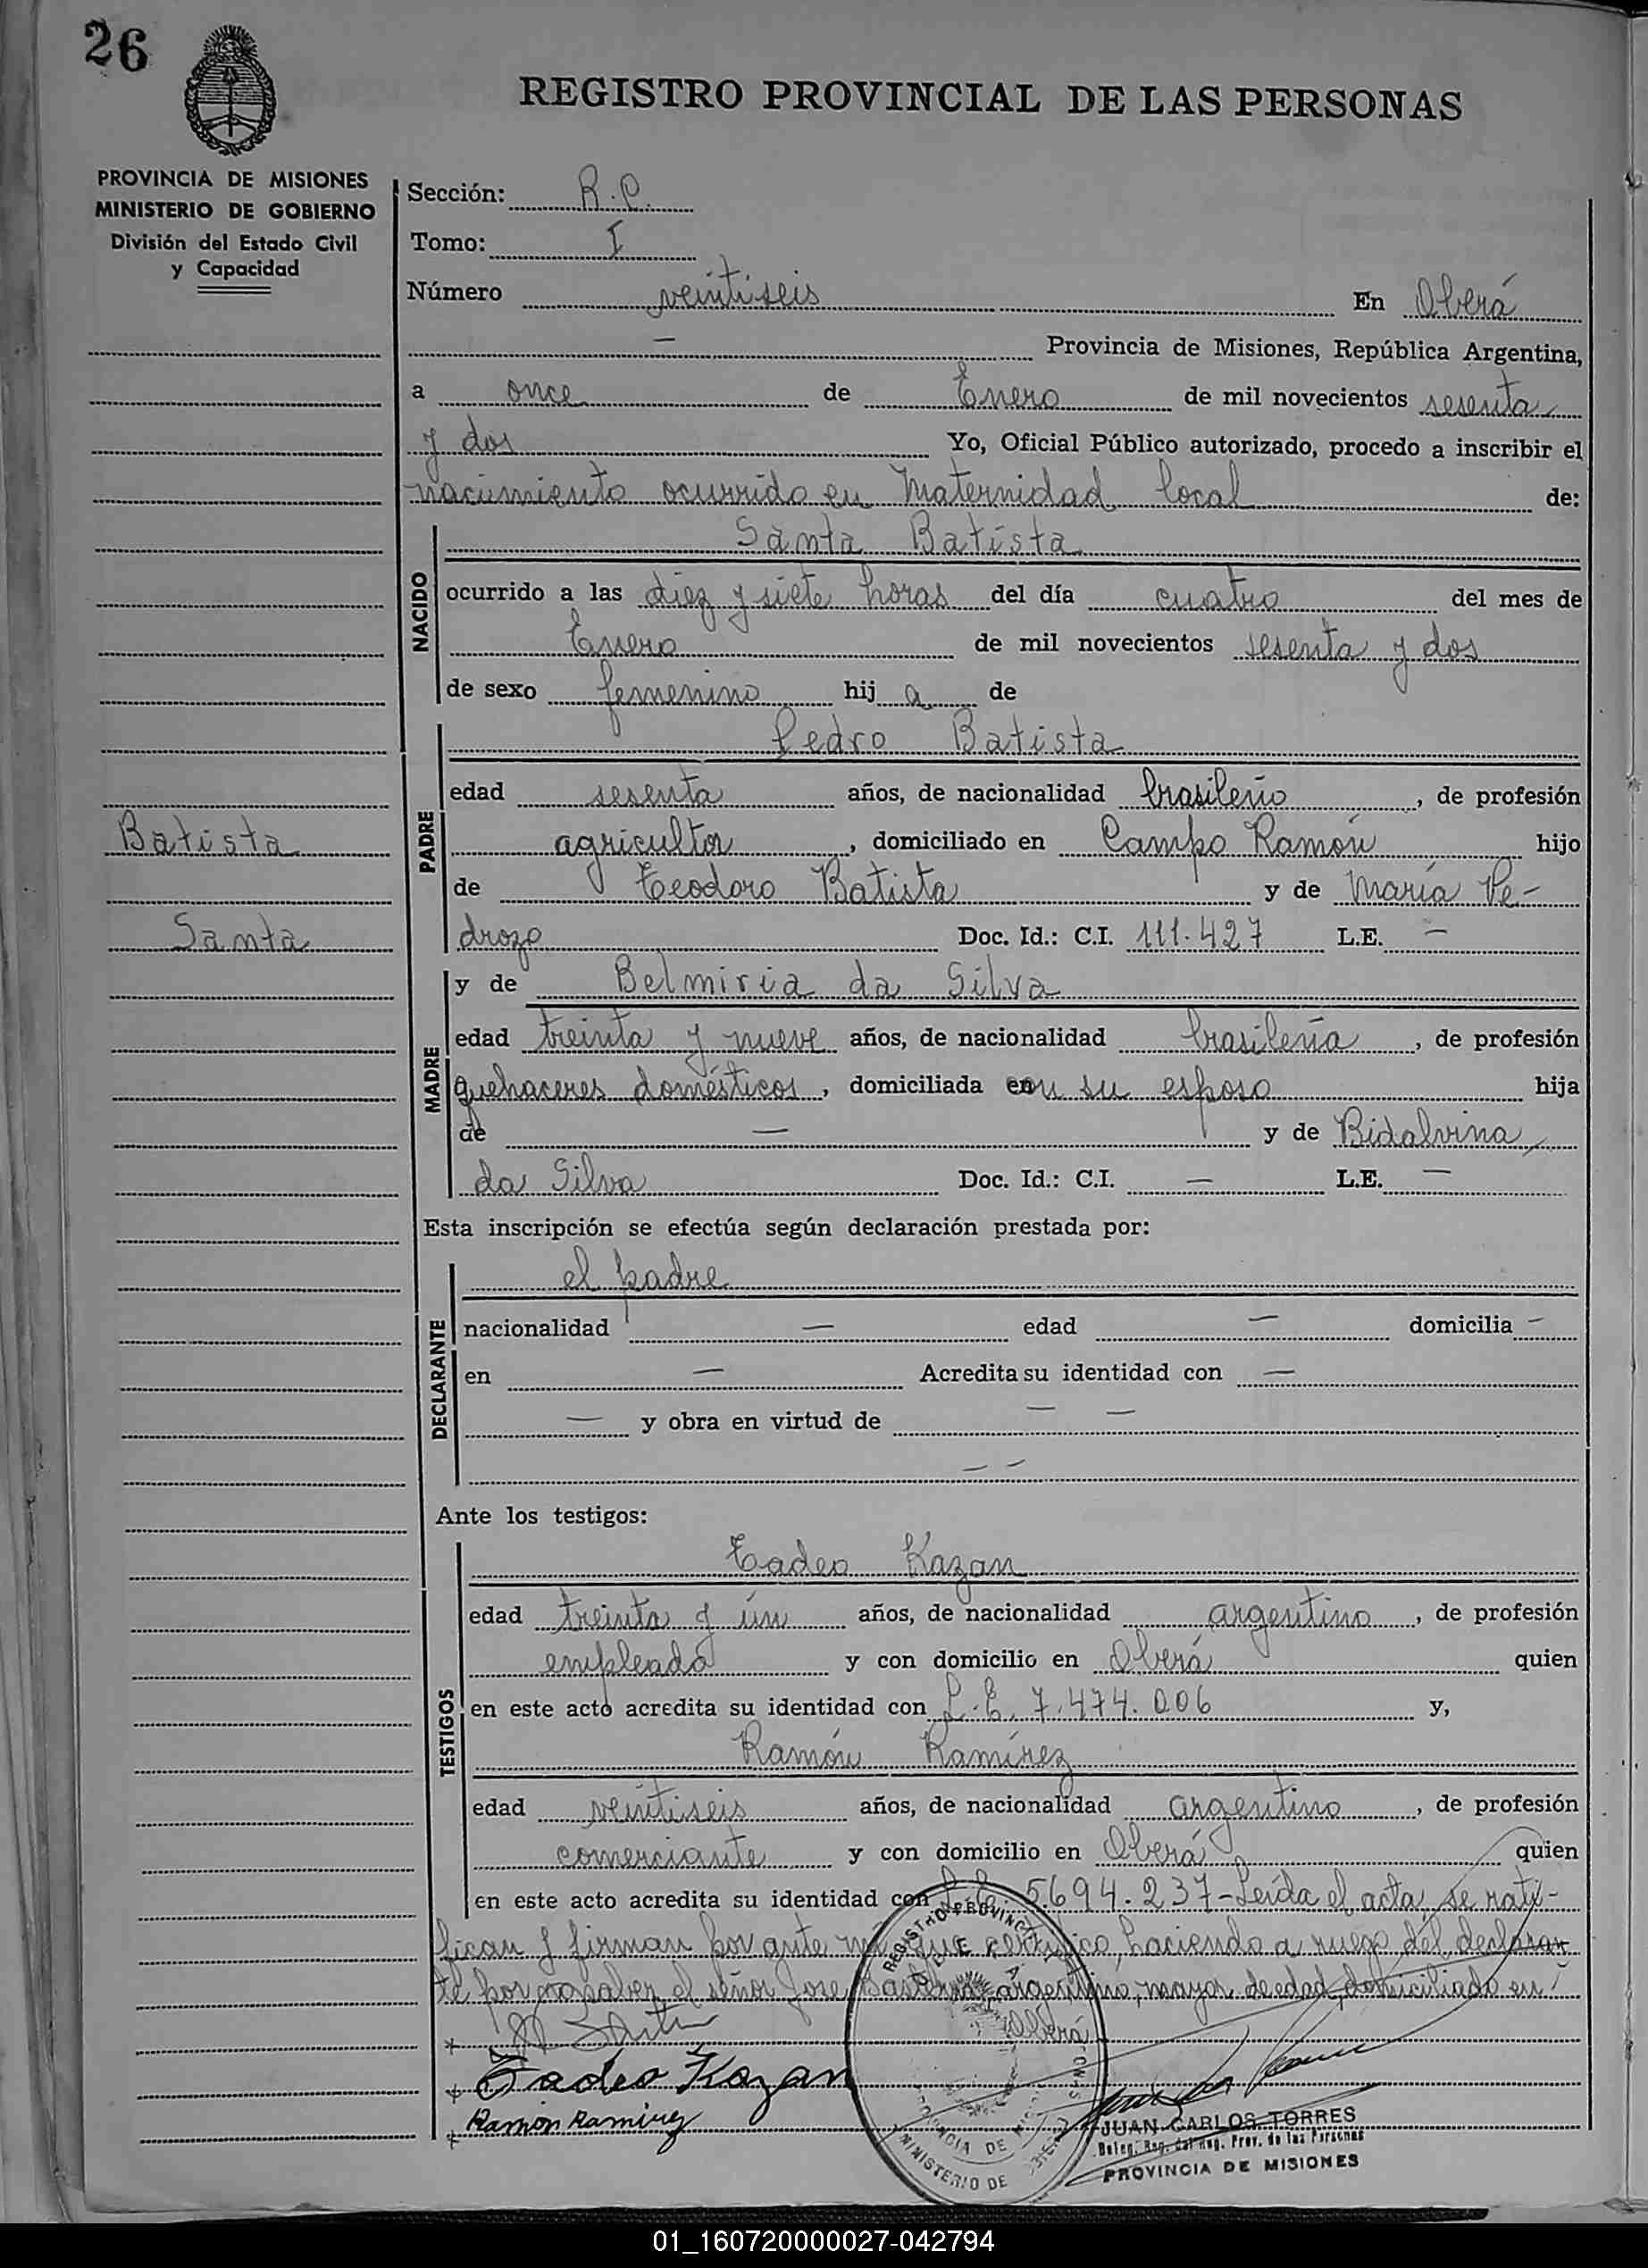 26
REGISTRO PROVINCIAL DE LAS PERSONAS
PROVINCIA DE MISIONES
MINISTERIO DE GOBIERNO
División del Estado Civil
y Capacidad
Sección: R.C.
Tomo: I
Número veintiseis En Oberá
— Provincia de Misiones, República Argentina,
a once de Enero de mil novecientos sesenta
y dos Yo, Oficial Público autorizado, procedo a inscribir el
nacimiento ocurrido en Maternidad local de:
NACIDO
Santa Batista
ocurrido a las diez y siete horas del día cuatro del mes de
Enero de mil novecientos sesenta y dos
de sexo femenino hij a de
PADRE
Pedro Batista
edad sesenta años, de nacionalidad brasileño, de profesión
Batista
agricultor, domiciliado en Campo Ramón hijo
de Teodoro Batista y de María Pe-
Santa
drozo Doc. Id.: C.I. 111.427 L.E. —
MADRE
y de Belmiria da Silva
edad treinta y nueve años, de nacionalidad brasileña, de profesión
quehaceres domésticos, domiciliada con su esposo hija
de — y de Bidalvina
da Silva Doc. Id.: C.I. — L.E. —
Esta inscripción se efectúa según declaración prestada por:
DECLARANTE
el padre
nacionalidad — edad — domicilia —
en — Acredita su identidad con —
— y obra en virtud de — —
— —
Ante los testigos:
TESTIGOS
Tadeo Kazan
edad treinta y ún años, de nacionalidad argentino, de profesión
empleado y con domicilio en Oberá quien
en este acto acredita su identidad con L.E. 7.474.006 y,
Ramón Ramírez
edad veintiseis años, de nacionalidad argentino, de profesión
comerciante y con domicilio en Oberá quien
en este acto acredita su identidad con L.E. 5694.237-Leída el acta, se rati-
fican y firman por ante mí que certifico, haciendo a ruego del declaran
te por no saber el señor Jose argentino, mayor de edad, domiciliado en
Oberá
Tadeo Kazan
Ramón Ramirez
REGISTRO PROVINCIAL DE LAS PERSONAS
MINISTERIO DE
PROVINCIA DE
JUAN CARLOS TORRES
Deleg. Reg. del Reg. Prov. de las Personas
PROVINCIA DE MISIONES
01_160720000027-042794